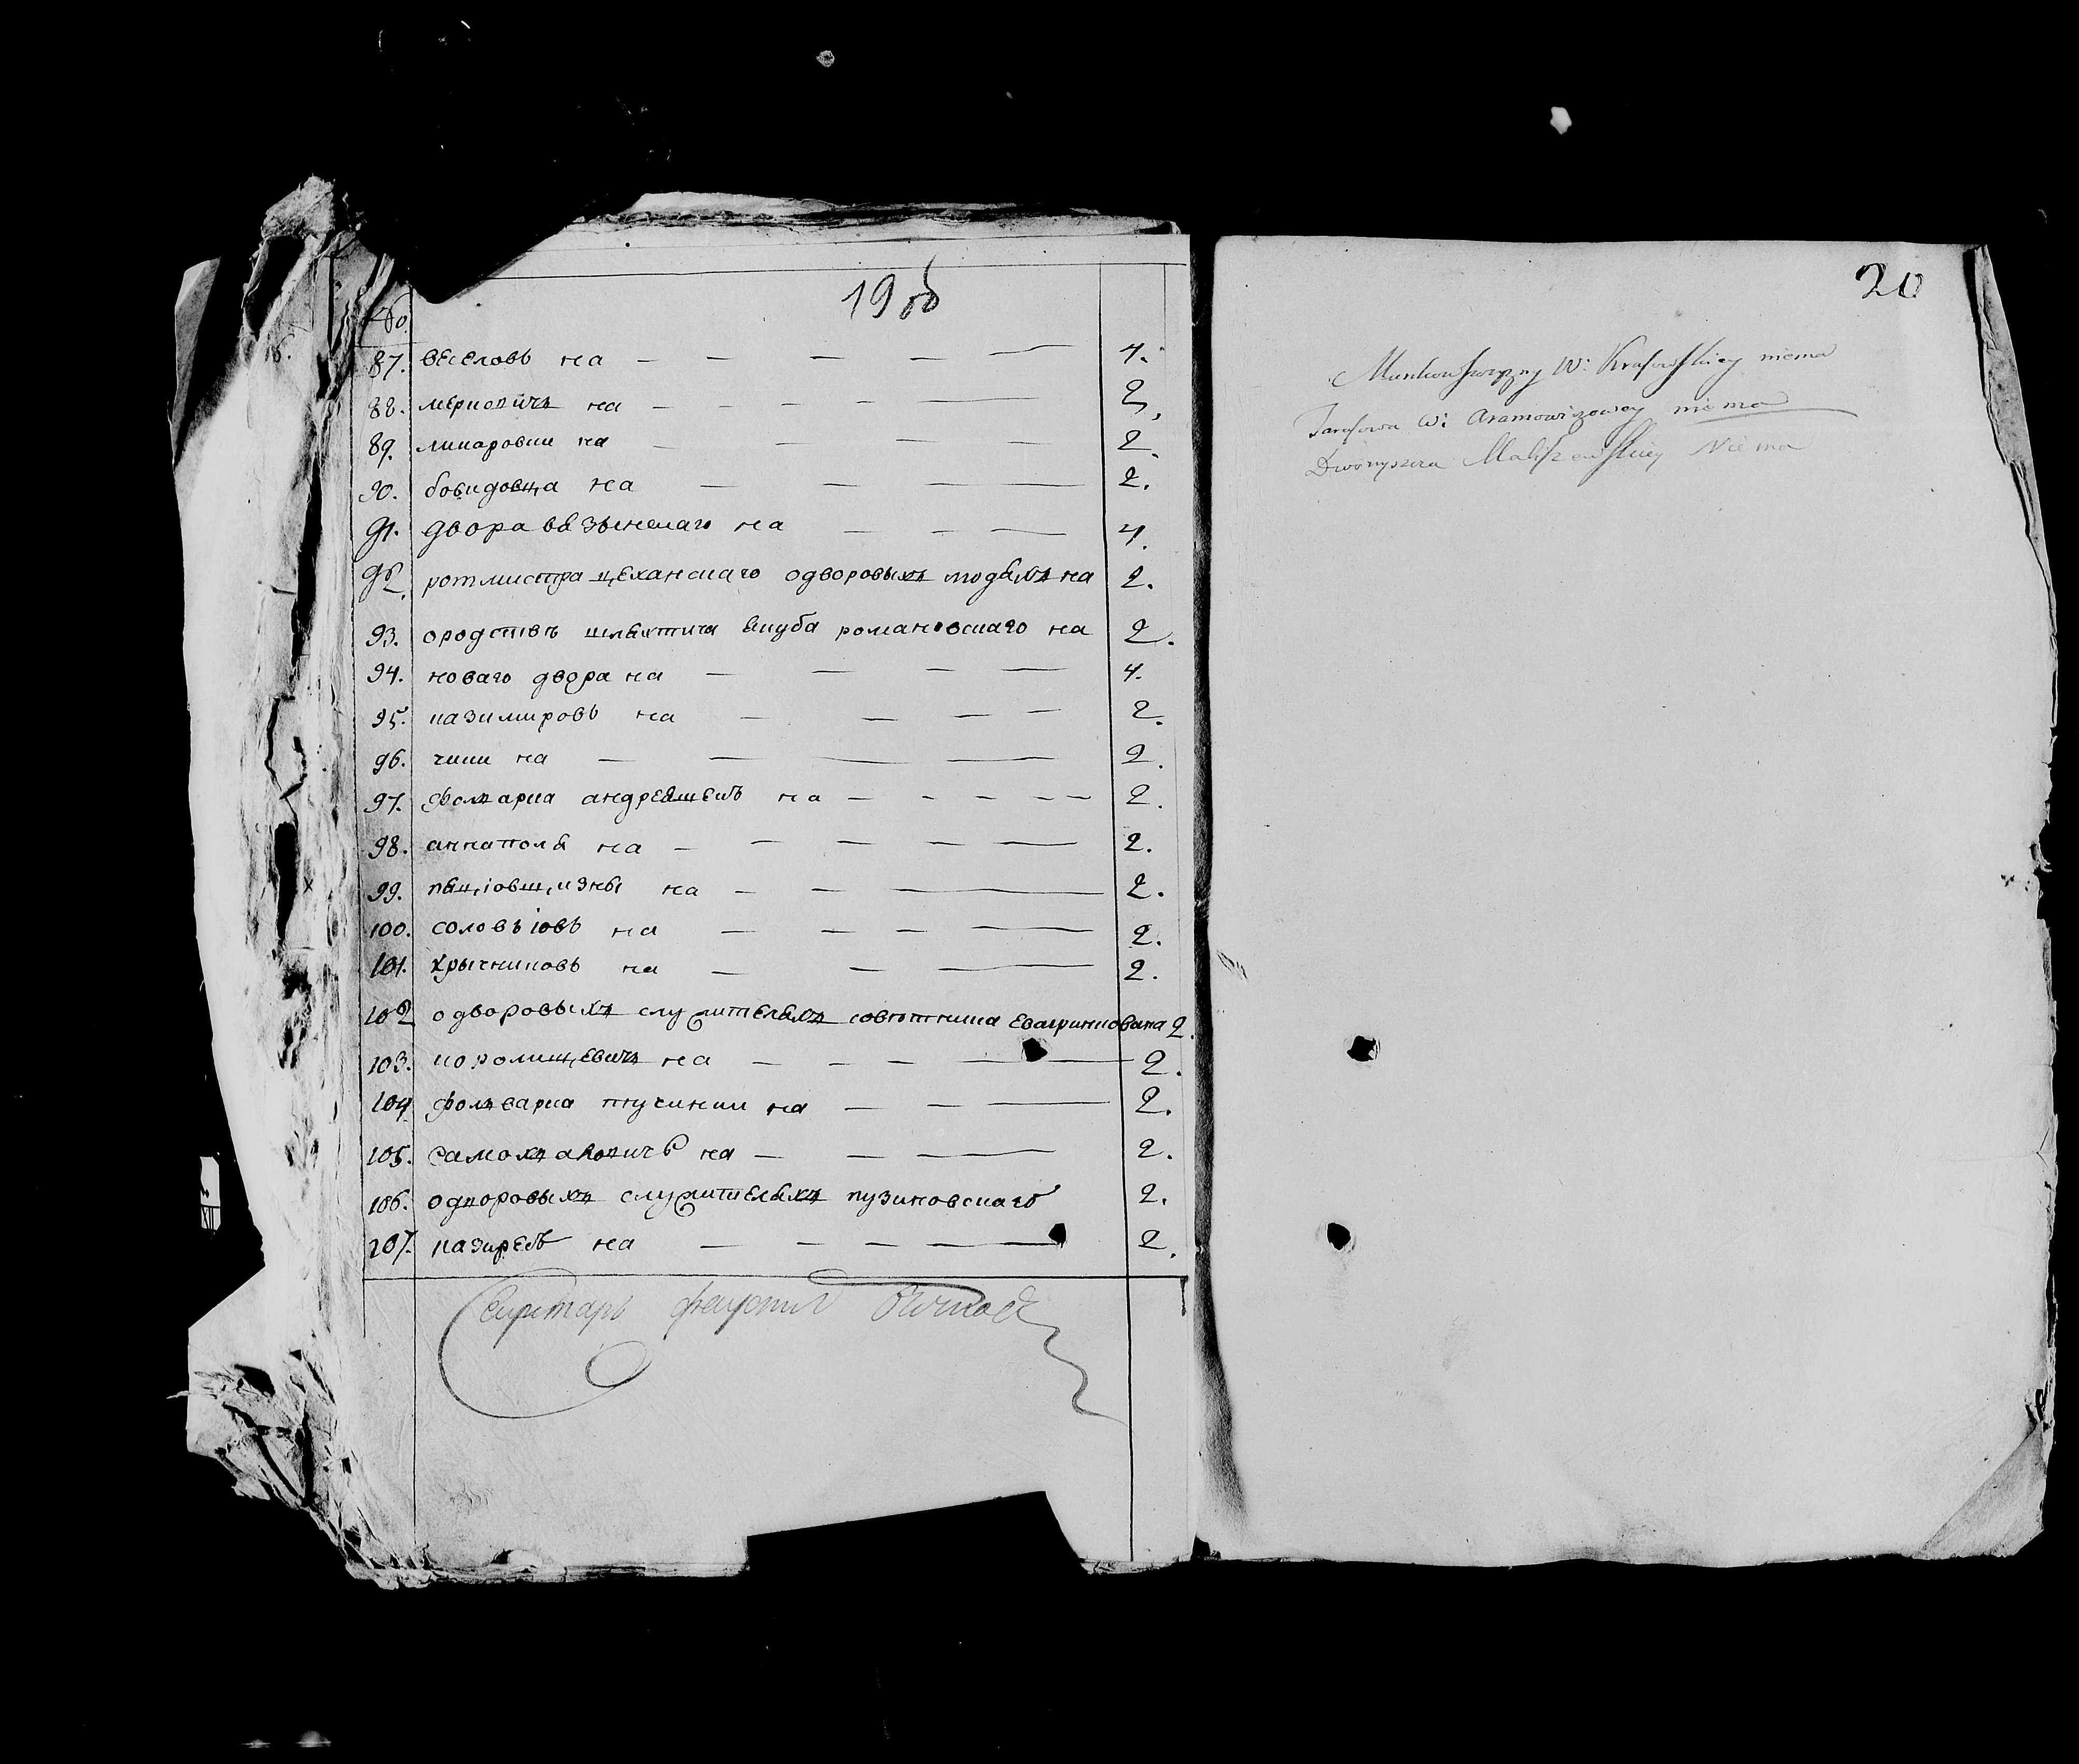 19 об
№
16.
87. веселовъ на — — — — — 4.
88. мѣриовичъ на — — — — — 2.
89. макаровки на — — — — 2.
90. бовидовца на — — — — 2.
91. двора вязынскаго на — — — 4.
92. ротмистра цеханскаго одворовыхъ людяхъ на 2.
93. ородствѣ шляхтича якуба романовскаго на 2.
94. новаго двора на — — — — 4.
95. казимировъ на — — — — 2.
96. чики на — — — — 2.
97. фолварка андреяшекъ на — — — — — 2.
98. аннаполя на — — — — — 2.
99. пяціовщизны на — — — 2.
100. соловьіовъ на — — — — 2.
101. крычниковъ на — — — 2.
102 одворовыхъ служителяхъ совѣтника на 2.
103. королищевичъ на — — — — 2.
104 фолварка птучинки на — — — 2.
105. самохваловичъ на — — — 2.
106. одворовыхъ служителяхъ пузиковскаго 2.
107. казирекъ на — — — — 2.
Секретарь
20
W: Krasowskiey niema
Tarasowa W: Aramowiczowey niema
Dworzyszcza Maliszewskiey Niema